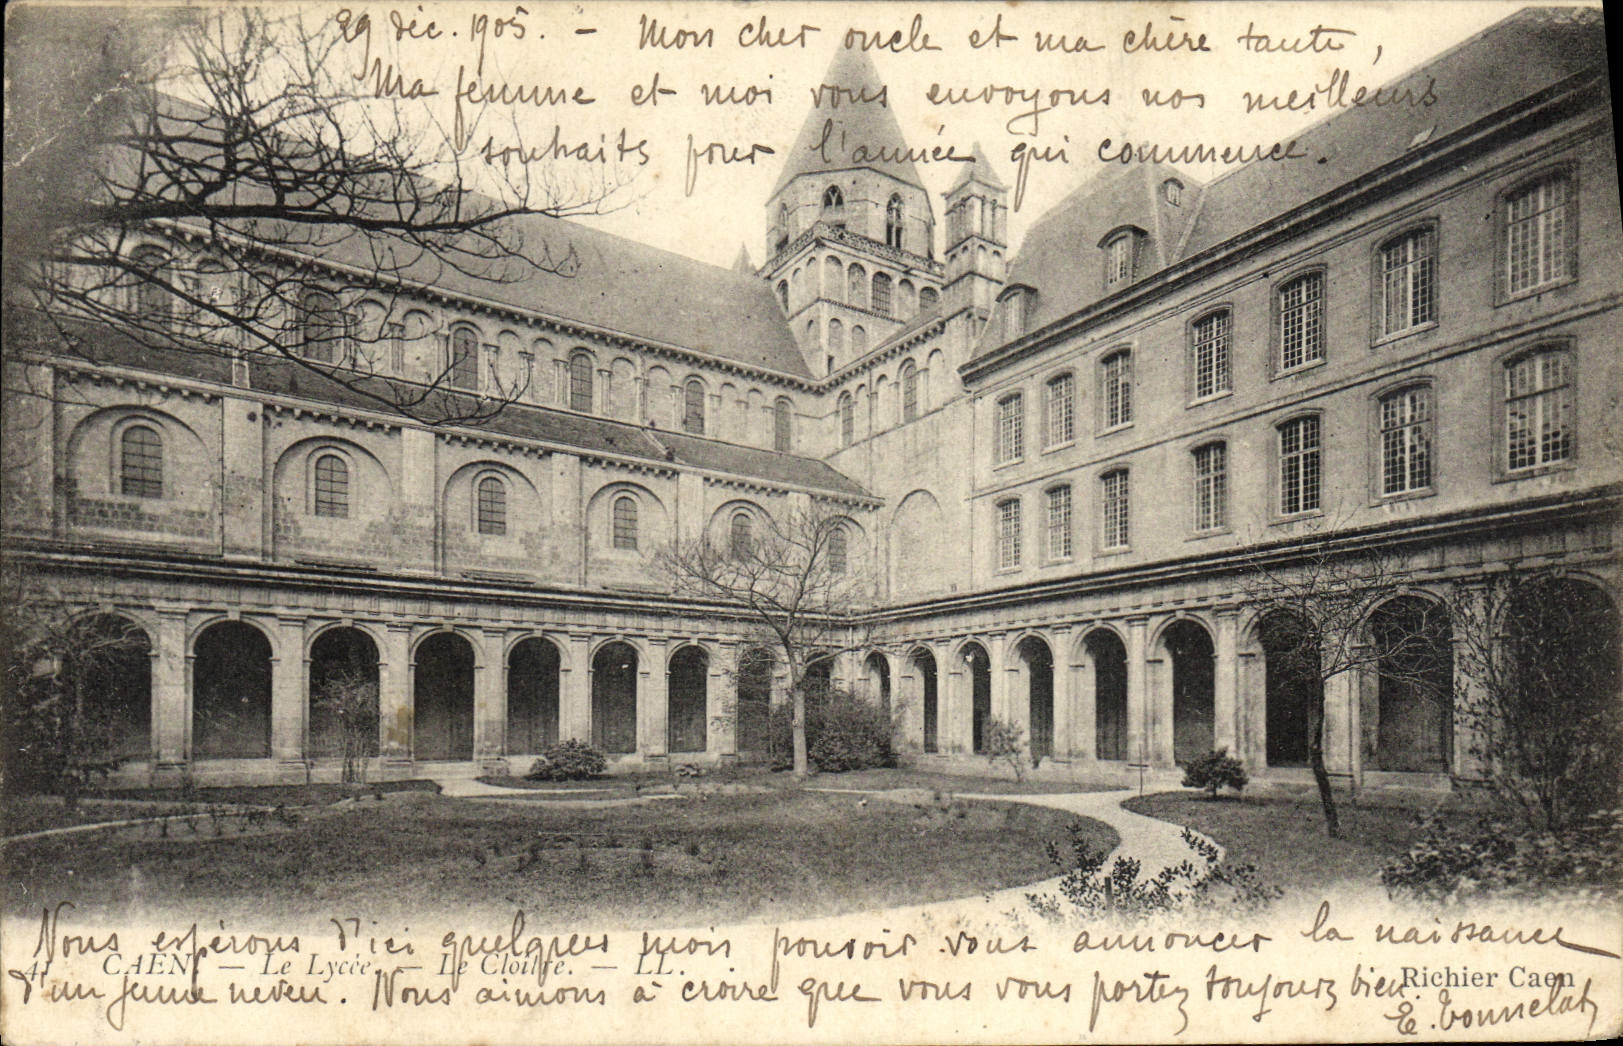 29 déc. 1905. - Mon cher oncle et ma chère tante,
Ma femme et moi vous envoyons nos meilleurs
souhaits pour l'année qui commence.
Nous espérons d'ici quelques mois pouvoir vous annoncer la naissance
41 CAEN. — Le Lycée. — Le Cloître. — LL.
d'un jeune neveu. Nous aimons à croire que vous vous portez toujours bien.
Richier Caen